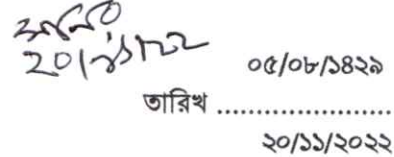 ২০/১১/২২
০৫/০৮/১৪২৯
তারিখ ....................
২০/১১/২০২২